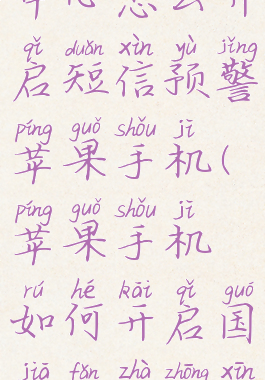 qǐ duǎn xìn yù jǐng
启短信预警
píng guǒ shǒu jī
苹果手机(
píng guǒ shǒu jī
苹果手机
rú hé kāi qǐ guó
如何开启国
jiā fǎn zhà zhōng xīn